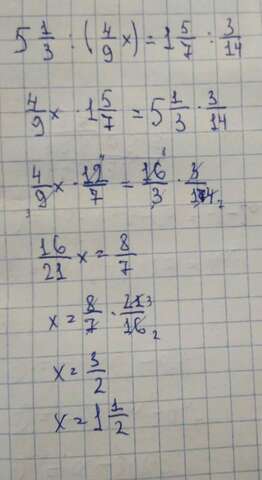 5 1/3 : (4/9 x) = 1 5/7 : 3/14
4/9 x · 1 5/7 = 5 1/3 · 3/14
4/9 x · 12/7 = 16/3 · 3/14
16/21 x = 8/7
x = 8/7 · 21/16
x = 3/2
x = 1 1/2